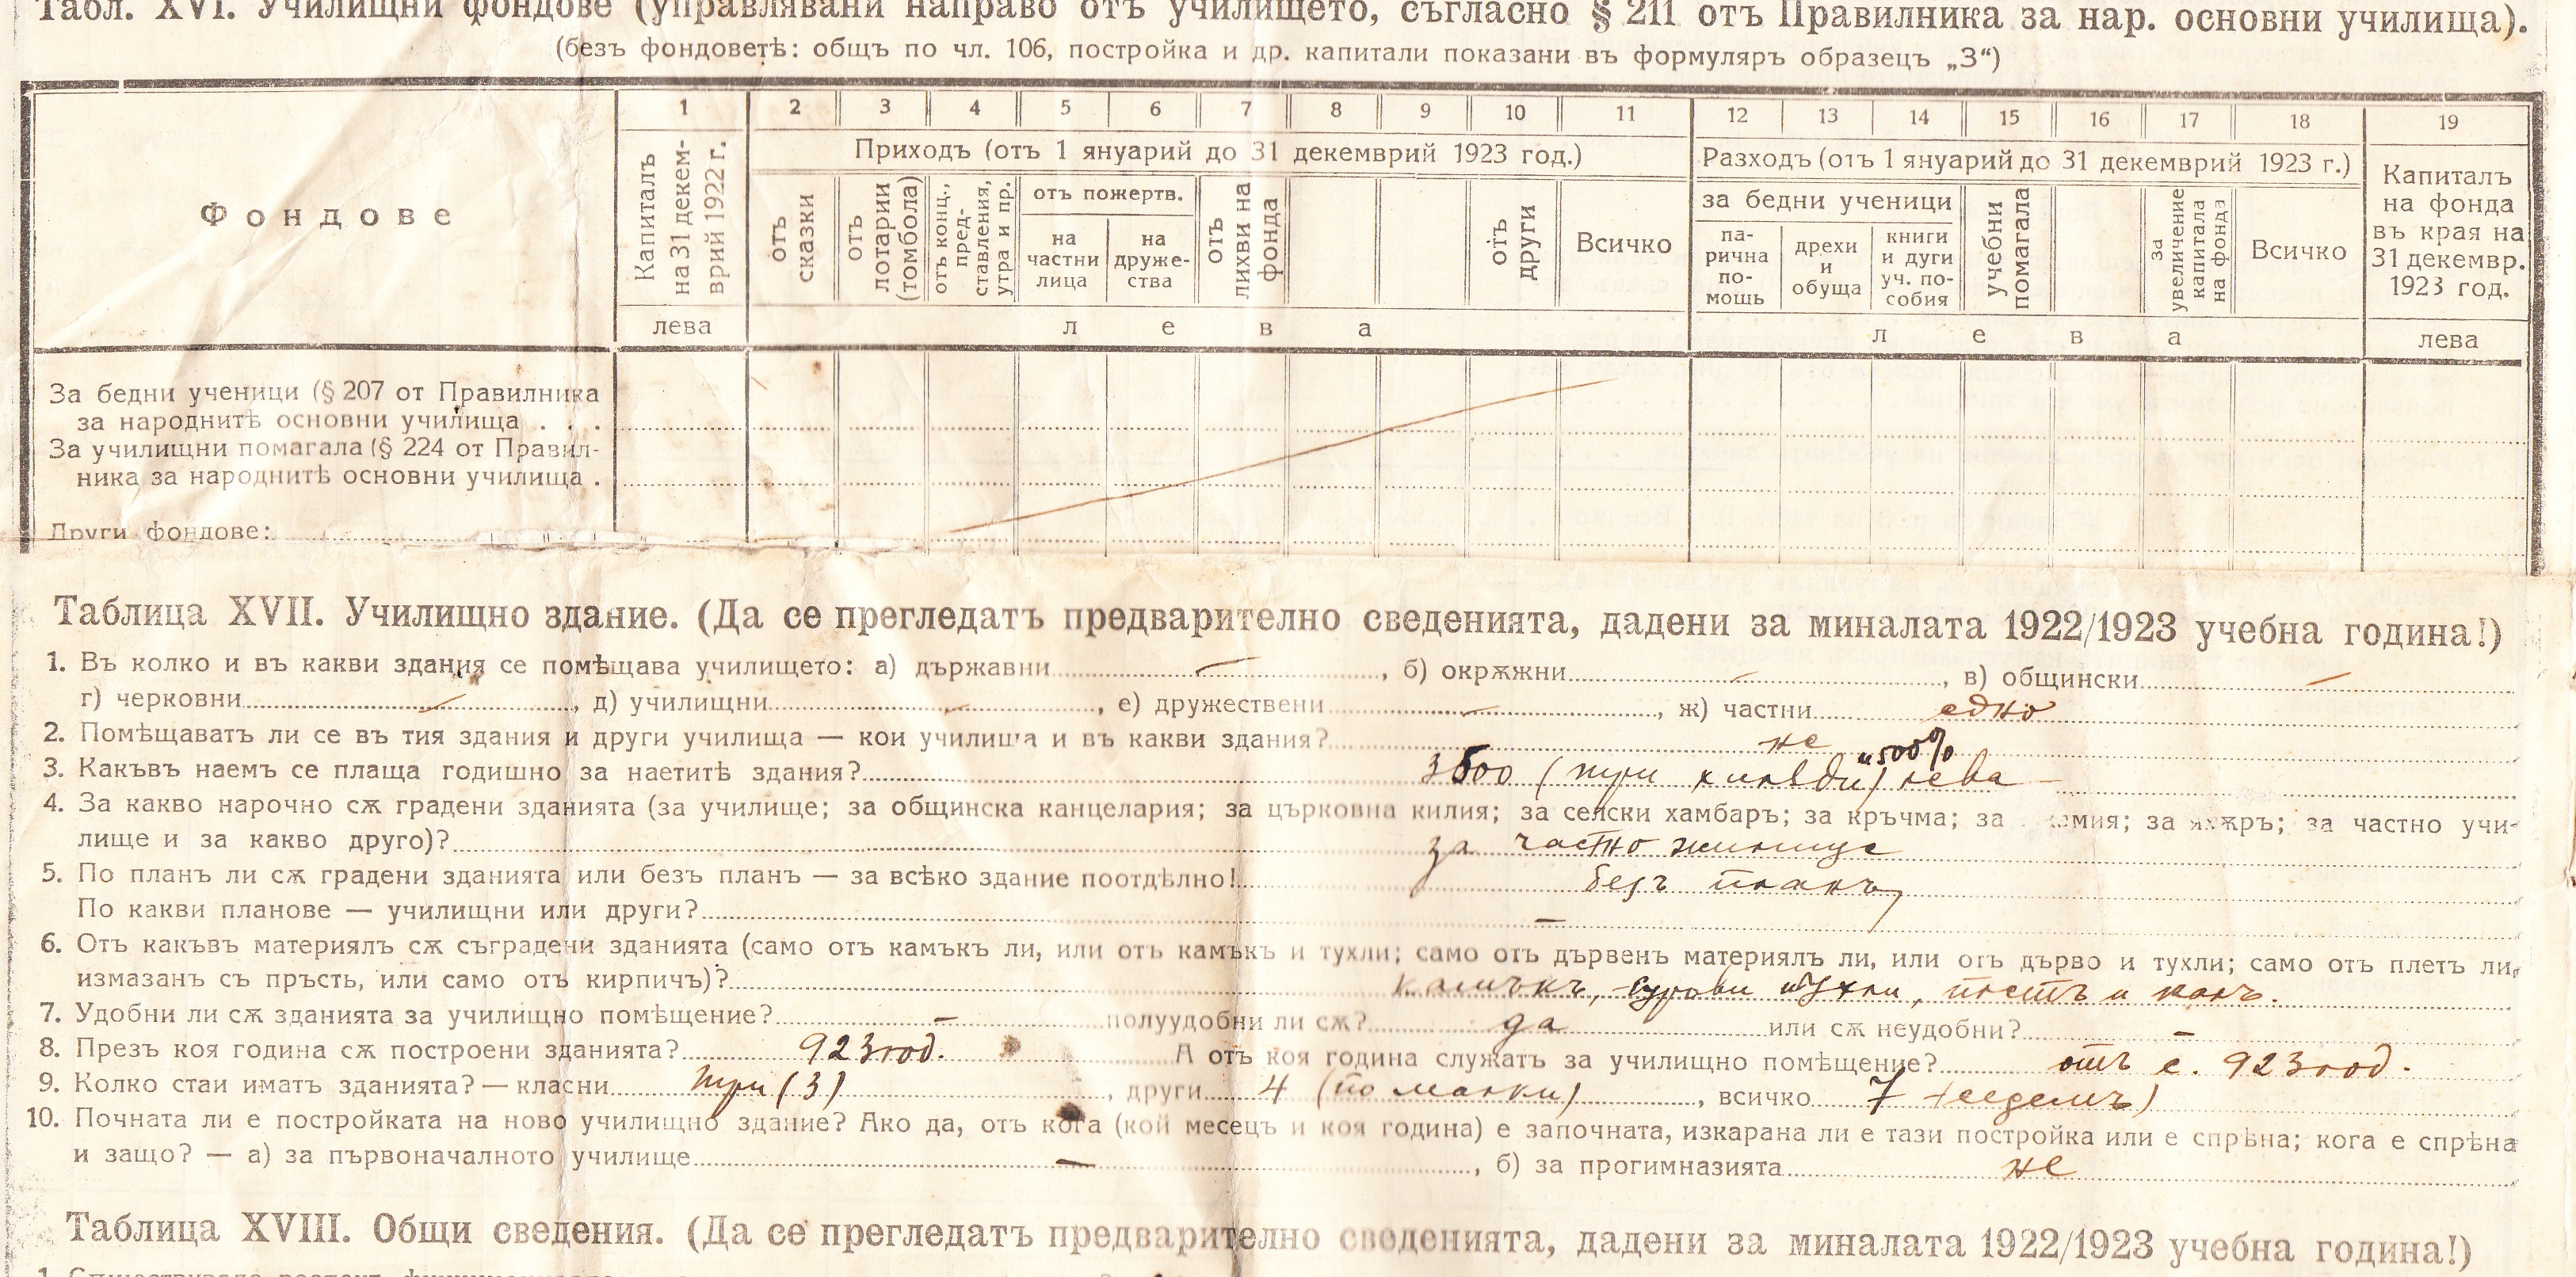 Табл. XVI. Училищни фондове (управлявани направо отъ училището, съгласно § 211 отъ Правилника за нар. основни училища).
(безъ фондоветѣ: общъ по чл. 106, постройка и др. капитали показани въ формуляръ образецъ „З“)
1 2 3 4 5 6 7 8 9 10 11 12 13 14 15 16 17 18 19
Фондове
Капиталъ на 31 декемврий 1922 г.
Приходъ (отъ 1 януарий до 31 декемврий 1923 год.)
Разходъ (отъ 1 януарий до 31 декемврий 1923 г.)
Капиталъ
на фонда
въ края на
31 декемвр.
1923 год.
отъ сказки
отъ лотарии (томбола)
отъ конц., пред-
ставления, утра и пр.
отъ пожертв.
на частни лица
на друже-
ства
отъ лихви на фонда
отъ други
Всичко
за бедни ученици
па-
рична
по-
мошь
дрехи
и
обуща
книги
и дуги
уч. по-
собия
учебни помагала
за увеличение капитала на фонда
Всичко
лева лева лева лева
За бедни ученици (§ 207 от Правилника
за народнитѣ основни училища . . .
За училищни помагала (§ 224 от Правил-
ника за народнитѣ основни училища .
Други фондове:
Таблица XVII. Училищно здание. (Да се прегледатъ предварително сведенията, дадени за миналата 1922/1923 учебна година!)
1. Въ колко и въ какви здания се помѣщава училището: а) държавни — , б) окрѫжни — , в) общински —
г) черковни — , д) училищни — , е) дружествени — , ж) частни едно
2. Помѣщаватъ ли се въ тия здания и други училища — кои училища и въ какви здания? не
3. Какъвъ наемъ се плаща годишно за наетитѣ здания? 3500 (три хиляди) и 500% лева —
4. За какво нарочно сѫ градени зданията (за училище; за общинска канцелария; за църковна килия; за селски хамбаръ; за кръчма; за за частно учи-
лище и за какво друго)? за частно жилище
5. По планъ ли сѫ градени зданията или безъ планъ — за всѣко здание поотдѣлно! безъ планъ
По какви планове — училищни или други? —
6. Отъ какъвъ материялъ сѫ съградени зданията (само отъ камъкъ ли, или отъ камъкъ и тухли; само отъ дървенъ материялъ ли, или отъ дърво и тухли; само отъ плетъ ли,
измазанъ съ пръсть, или само отъ кирпичъ)? камъкъ, сурови тухли, плетъ и калъ.
7. Удобни ли сѫ зданията за училищно помѣщение? — полуудобни ли сѫ? да или сѫ неудобни? —
8. Презъ коя година сѫ построени зданията? 923 год. А отъ коя година служатъ за училищно помѣщение? отъ с. 923 год.
9. Колко стаи иматъ зданията? — класни три (3) , други 4 (по малки) , всичко 7 (седемъ)
10. Почната ли е постройката на ново училищно здание? Ако да, отъ кога (кой месецъ и коя година) е започната, изкарана ли е тази постройка или е спрѣна; кога е спрѣна
и защо? — а) за първоначалното училище — , б) за прогимназията не
Таблица XVIII. Общи сведения. (Да се прегледатъ предварително сведенията, дадени за миналата 1922/1923 учебна година!)